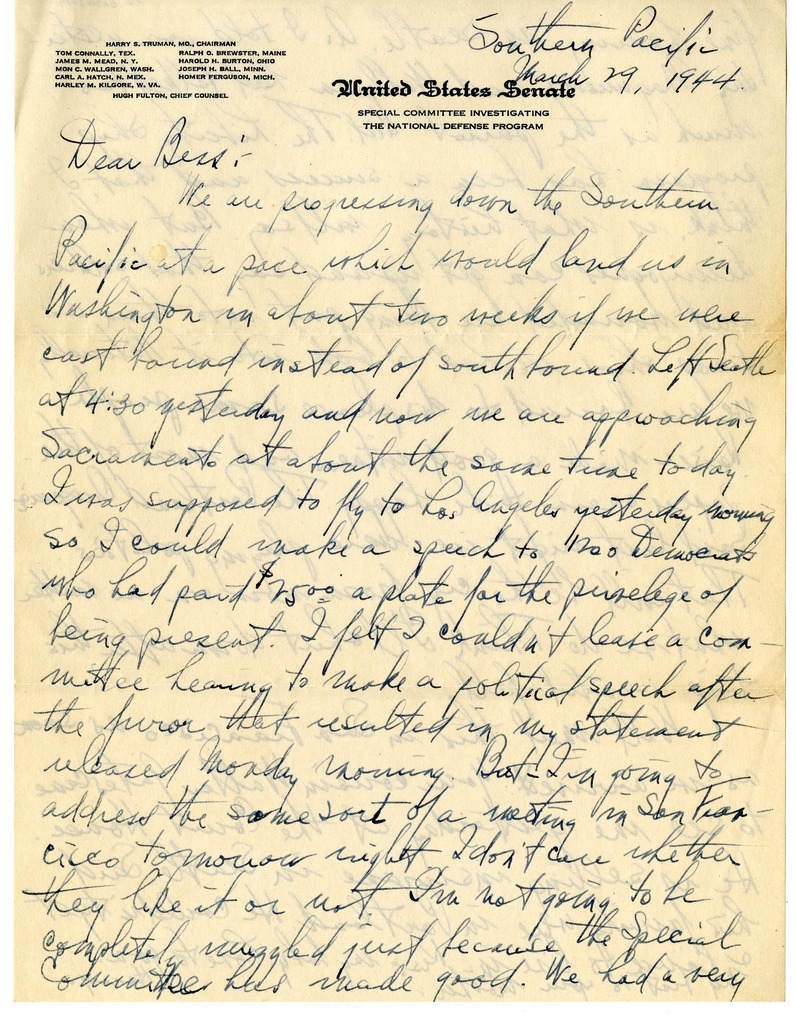 Southern Pacific
March 29, 1944.
HARRY S. TRUMAN, MO., CHAIRMAN
TOM CONNALLY, TEX.
JAMES M. MEAD, N. Y.
MON C. WALLGREN, WASH.
CARL A. HATCH, N. MEX.
HARLEY M. KILGORE, W. VA.
RALPH O. BREWSTER, MAINE
HAROLD H. BURTON, OHIO
JOSEPH H. BALL, MINN.
HOMER FERGUSON, MICH.
HUGH FULTON, CHIEF COUNSEL
United States Senate
SPECIAL COMMITTEE INVESTIGATING
THE NATIONAL DEFENSE PROGRAM
Dear Bess:-
We are progressing down the Southern
Pacific at a pace which would land us in
Washington in about two weeks if we were
east bound instead of southbound. Left Seattle
at 4:30 yesterday and now we are approaching
Sacramento at about the same time today.
I was supposed to fly to Los Angeles yesterday morning
so I could make a speech to 1200 Democrats
who had paid $25 00 a plate for the privelege of
being present. I felt I couldn't leave a com-
mittee hearing to make a political speech after
the furor that resulted in my statement
released Monday morning. But I'm going to
address the same sort of a meeting in San Fran-
cisco tomorrow night. I don't care whether
they like it or not. I'm not going to be
completely muzzled just because the Special
Committee has made good. We had a very